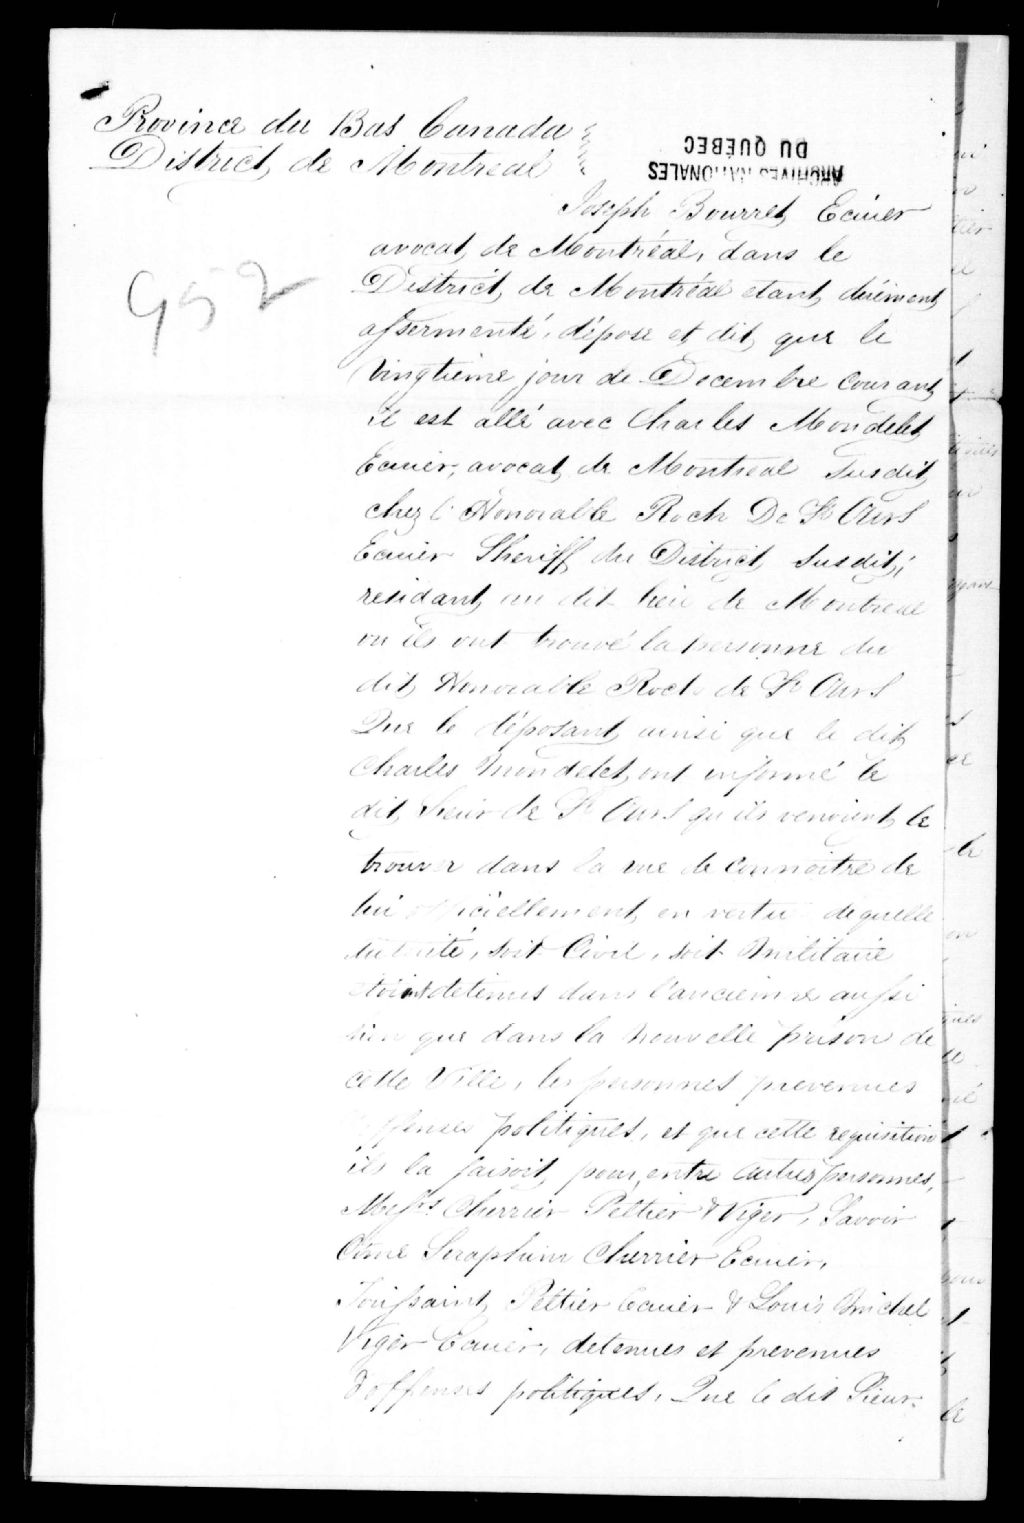 Province du Bas Canada
District de Montreal
ARCHIVES NATIONALES
DU QUÉBEC
952
Joseph Bourret Ecuier
avocat de Montréal, dans le
District de Montréal etant duement
assermenté, dépose et dit que le
Vingtieme jour de Decembre Courant
il est allé avec Charles Mondelet
Ecuier, avocat de Montreal Susdit
chez l'Honorable Roch De St Ours
Ecuier Sheriff du District Susdit,
residant au dit lieu de Montreal
ou ils ont trouvé la personne du
dit Honorable Roch de St Ours
Que le déposant ainsi que le dit
Charles Mondelet, ont informé le
dit Sieur de St Ours qu'ils venoient le
trouver dans la vue de Connoitre de
lui officiellement en vertu de quelle
autorité, soit Civil, soit Militaire
etoient detenus dans l'ancienne aussi
bien que dans la nouvelle prison de
cette Ville, les personnes prevenues
d'offenses politiques, et que cette requisition
ils la faisoit pour, entre autres personnes,
Messrs Cherrier Peltier & Viger, Savoir
Côme Seraphim Cherrier Ecuier,
Toussaint Peltier Ecuier & Louis Michel
Viger Ecuier, detenues et prevenues
d'offenses politiques, Que le dit Sieur